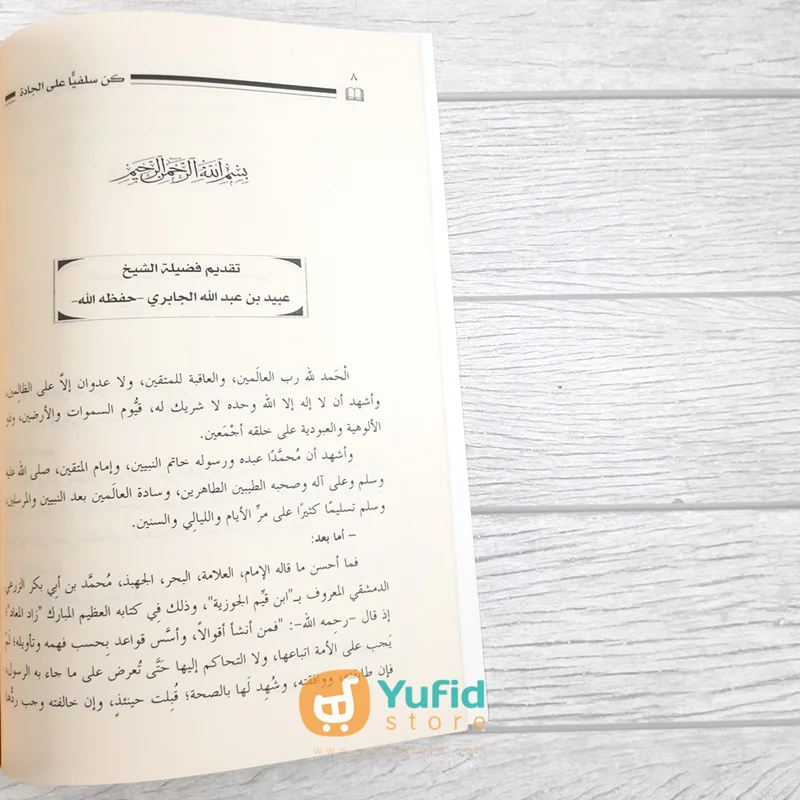 ٨
كن سلفيًّا على الجادة
بِسْمِ اللَّهِ الرَّحْمَنِ الرَّحِيمِ
تقديم فضيلة الشيخ
عبيد بن عبد الله الجابري -حفظه الله-
الْحَمد لله رب العالَمين، والعاقبة للمتقين، ولا عدوان إلاَّ على الظالِمين،
وأشهد أن لا إله إلا الله وحده لا شريك له، قيُّوم السموات والأرضين، وذو
الألوهية والعبودية على خلقه أجْمَعين.
وأشهد أن مُحمَّدًا عبده ورسوله خاتم النبيين، وإمام المتقين، صلى الله عليه
وسلم وعلى آله وصحبه الطيبين الطاهرين، وسادة العالَمين بعد النبيين والمرسلين،
وسلم تسليمًا كثيرًا على مرِّ الأيام والليالِي والسنين.
- أما بعد:
فما أحسن ما قاله الإمام، العلامة، البحر، الجهبذ، مُحمَّد بن أبِي بكر الزرعي
الدمشقي المعروف بـ"ابن قيِّم الجوزية"، وذلك فِي كتابه العظيم المبارك "زاد المعاد"؛
إذ قال -رحِمه الله-: "فمن أنشأ أقوالاً، وأسَّس قواعد بِحسب فهمه وتأويله؛ لَمْ
يَجب على الأمة اتباعها، ولا التحاكم إليها حَتَّى تُعرض على ما جاء به الرسول،
فإن طابقته، ووافقته، وشُهِد لَها بالصحة؛ قُبِلت حينئذٍ، وإن خالفته وجب ردُّها
Yufid
store
www.yufidstore.com